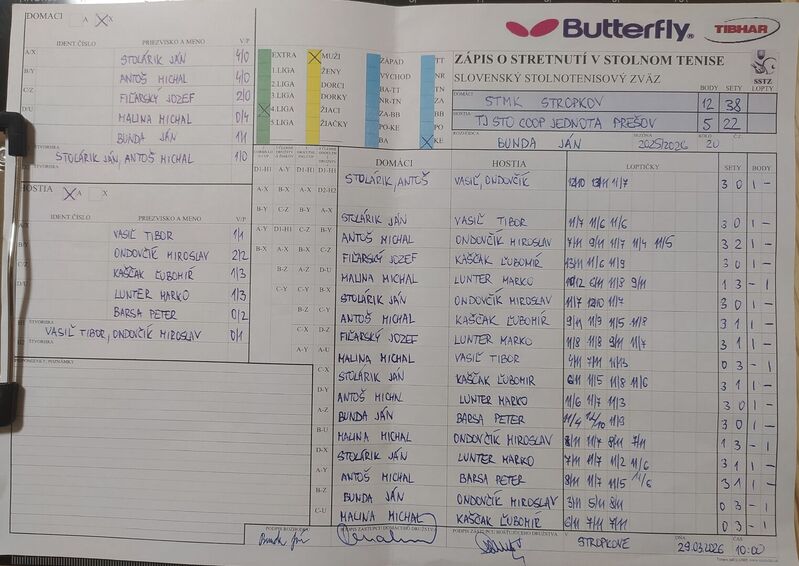 DOMÁCI A X
Butterfly.
TIBHAR
IDENT.ČÍSLO PRIEZVISKO A MENO V/P
A/X STOLÁRIK JÁN 4/0
B/Y ANTOŠ MICHAL 4/0
C/Z FIĽARSKÝ JOZEF 2/0
D/U MALINA MICHAL 0/4
BUNDA JÁN 1/1
ŠTVORHRA STOLÁRIK JÁN, ANTOŠ MICHAL 1/0
EXTRA
1.LIGA
2.LIGA
3.LIGA
4.LIGA
5.LIGA
MUŽI
ŽENY
DORCI
DORKY
ŽIACI
ŽIAČKY
ZÁPAD
VÝCHOD
BA-TT
NR-TN
ZA-BB
PO-KE
BA
TT
NR
TN
ZA
BB
PO
KE
ZÁPIS O STRETNUTÍ V STOLNOM TENISE
SLOVENSKÝ STOLNOTENISOVÝ ZVÄZ
SSTZ
DOMÁCI STMK STROPKOV BODY 12 SETY 38 LOPTY
HOSTIA TJ STO COOP JEDNOTA PREŠOV 5 22
ROZHODCA BUNDA JÁN SEZÓNA 2025/2026 KOLO 20 Č.
HOSTIA A X
IDENT.ČÍSLO PRIEZVISKO A MENO V/P
VASIĽ TIBOR 1/1
ONDOVČÍK MIROSLAV 2/2
KAŠČAK ĽUBOMÍR 1/3
LUNTER MARKO 1/3
BARSA PETER 0/2
ŠTVORHRA VASIĽ TIBOR, ONDOVČÍK MIROSLAV 0/1
PRIPOMIENKY, POZNÁMKY
DOMÁCI HOSTIA LOPTIČKY SETY BODY
STOLÁRIK, ANTOŠ VASIĽ, ONDOVČÍK 12/10 13/11 11/7 3 0 1 -
STOLÁRIK JÁN VASIĽ TIBOR 11/7 11/6 11/6 3 0 1 -
ANTOŠ MICHAL ONDOVČÍK MIROSLAV 7/11 9/11 11/7 11/4 11/5 3 2 1 -
FIĽARSKÝ JOZEF KAŠČAK ĽUBOMÍR 13/11 11/6 11/9 3 0 1 -
MALINA MICHAL LUNTER MARKO 10/12 6/11 11/8 9/11 1 3 - 1
STOLÁRIK JÁN ONDOVČÍK MIROSLAV 11/7 12/10 11/7 3 0 1 -
ANTOŠ MICHAL KAŠČAK ĽUBOMÍR 9/11 11/9 11/5 11/8 3 1 1 -
FIĽARSKÝ JOZEF LUNTER MARKO 11/8 11/8 9/11 11/7 3 1 1 -
MALINA MICHAL VASIĽ TIBOR 4/11 7/11 11/13 0 3 - 1
STOLÁRIK JÁN KAŠČAK ĽUBOMÍR 6/11 11/5 11/8 11/6 3 1 1 -
ANTOŠ MICHAL LUNTER MARKO 11/6 11/7 11/3 3 0 1 -
BUNDA JÁN BARSA PETER 11/4 12/10 11/9 3 0 1 -
MALINA MICHAL ONDOVČÍK MIROSLAV 8/11 11/7 9/11 7/11 1 3 - 1
STOLÁRIK JÁN LUNTER MARKO 7/11 11/7 11/2 11/6 3 1 1 -
ANTOŠ MICHAL BARSA PETER 8/11 11/7 11/5 11/6 3 1 1 -
BUNDA JÁN ONDOVČÍK MIROSLAV 3/11 5/11 8/11 0 3 - 1
MALINA MICHAL KAŠČAK ĽUBOMÍR 6/11 7/11 7/11 0 3 - 1
PODPIS ROZHODCU PODPIS ZÁSTUPCU DOMÁCEHO DRUŽSTVA PODPIS ZÁSTUPCU HOSŤUJÚCEHO DRUŽSTVA V STROPKOVE DŇA 29.03.2026 ČAS 10:00